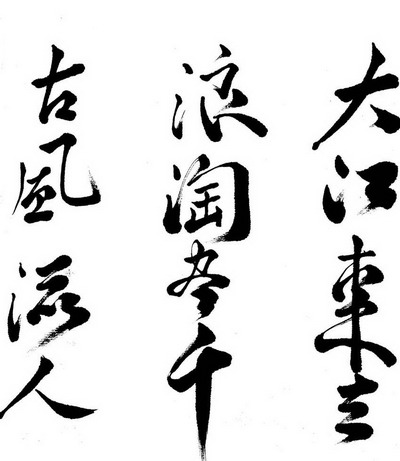 大江東去
浪淘尽千
古風流人